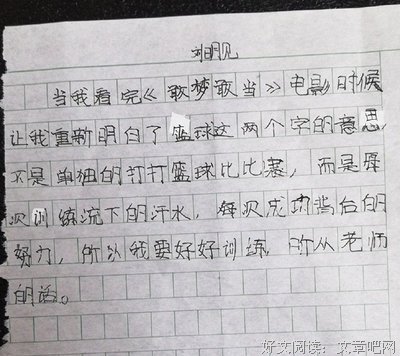 刘明见
当我看完《敢梦敢当》电影时候
让我重新明白了篮球这两个字的意思,
不是单独的打打篮球比比赛,而是每
次训练流下的汗水,每次成功背后的
努力,所以我要好好训练,听从老师
的话。
好文阅读:文章吧网